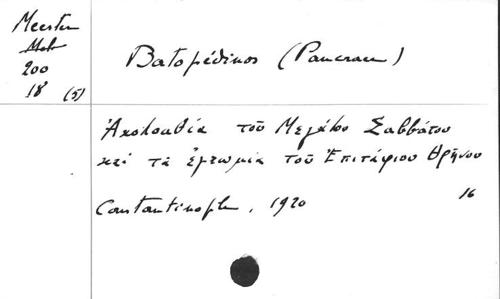 Meester
200
18 (5)
Batopédinos (Pancrace)
Ἀκολουθία τοῦ Μεγάλου Σαββάτου
καὶ τὰ ἐγκώμια τοῦ Ἐπιτάφιου Θρήνου
Constantinople, 1920
16